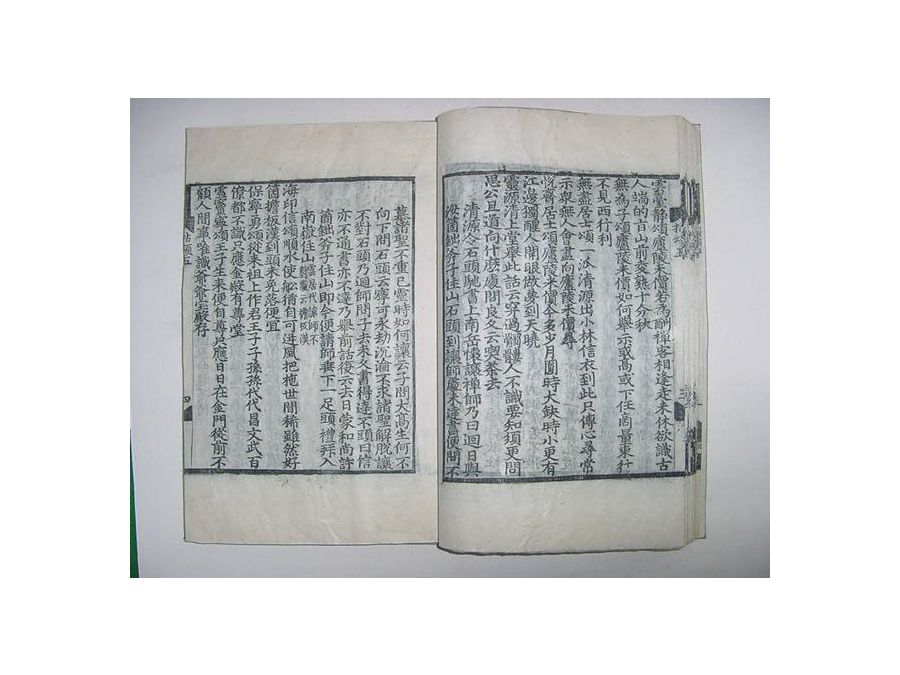 雲臺靜頌廬陵米價若爲酬禪客相逢走未休欲識古
人端的百山前麥熟十分秋
無爲子頌廬陵米價如何擧示或高或下任商量東行
不見西行利
無盡居士頌一派清源出小林信衣到此只傳心尋常
示衆無人會盡向廬陵米價尋
悅齋居士頌廬陵米價今多少月圓時大缺時小更有
江邊獨醒人開眼做夢到天曉
靈源清上堂擧此話云穿過髑髏人不識要知須更問
思公且道向什麽處問良久云喫茶去
清源令石頭馳書上南岳懷讓禪師乃曰迴日與
汝箇鈯斧子住山石頭到讓師處未達書便問不
慕諸聖不重已靈時如何讓云子問大高生何不
向下問石頭云寧可永劫沉淪不求諸聖解脫讓
不對石頭乃迴師問子去未久書得達不頭曰信
亦不通書亦不達乃擧前話復云去日蒙和尚許
箇鈯斧子住山即今便請師垂下一足頭禮拜入
南嶽住山
海印信頌順水使舩猶自可逆風把拖世間稀雖然好
箇擔板漢到頭未免落便宜
保寧勇頌從來祖上作君王子子孫孫代代昌文武百
僚都不識只應金殿有尊堂
雲頌王子生來便自尊只應日日在金門從前不
顧人間事唯識爺爺宝殿存
四